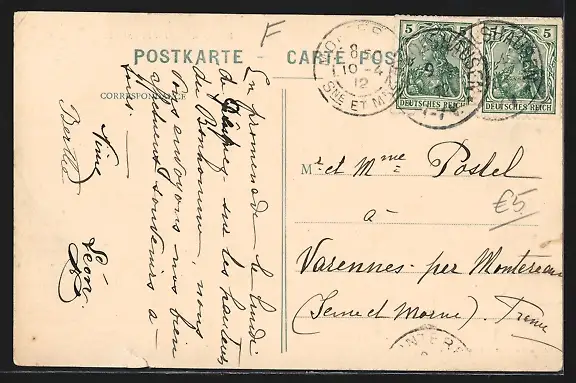 POSTKARTE — CARTE POSTALE
CORRESPONDANCE
En promenade le lundi
de Pâques sur les hauteurs
du Bonhomme, nous
vous envoyons nos bien
affectueux souvenirs à
tous. —
Berthe
Léon
5
DEUTSCHES REICH
5
DEUTSCHES REICH
8
10-4
12
SNE ET MNE
Mr et Mme Postel
à
Varennes per Montereau
(Seine et Marne). France
€5.
F